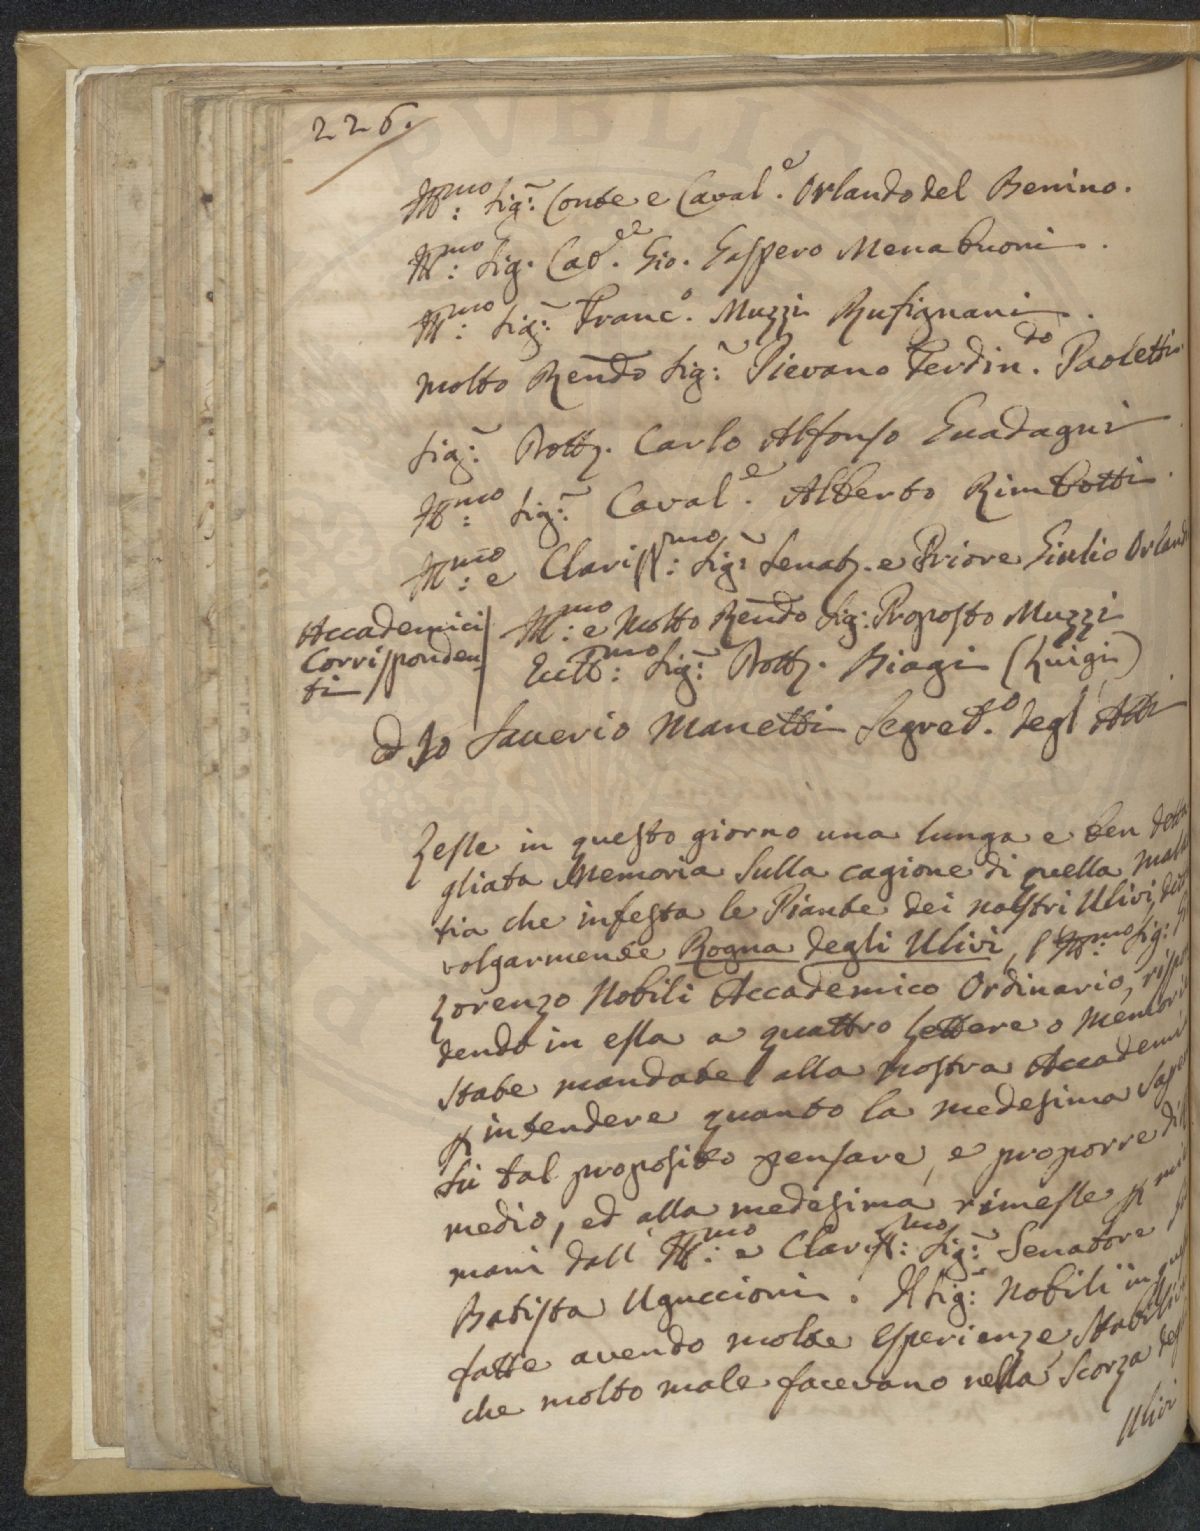 226.
Ill:mo Sig:r Conte e Caval.e Orlando del Benino.
Ill:mo Sig. Cav.e Gio. Gaspero Menabuoni.
Ill:mo Sig:r Franc.o Muzzi Rufignani.
Molto Rendo Sig:r Pievano Ferdin.do Paoletti
Sig:r Dott. Carlo Alfonso Guadagni
Ill:mo Sig:r Caval.e Alberto Rimbotti.
Ill:mo e Clariss:mo Sig:r Senat. e Priore Giulio Orland
Accademici
Corrisponden
ti
Ill:mo e Molto Rendo Sig: Proposto Muzzi
Eccll:mo Sig:r Dott. Biagi (Luigi)
ed Io Saverio Manetti Segret.o degl'Atti
Lesse in questo giorno una lunga e ben detta
gliata Memoria sulla cagione di quella mala
tia che infesta le Piante dei nostri Ulivi,
volgarmente Rogna degli Ulivi, l'Ill:mo Sig:
Lorenzo Nobili Accademico Ordinario, rispon
dendo in essa a quattro Lettere o Memorie
state mandate alla nostra Accademia
p intendere quanto la medesima sape
sù tal proposito pensare, e proporre di
medio, ed alla medesima rimesse p
mani dall'Ill:mo e Clariss:mo Sig:r Senatore
Batista Uguccioni. Il Sig:r Nobili in
fatte avendo molte esperienze, stabilì
che molto male facevano nella Scorza deg
Ulivi